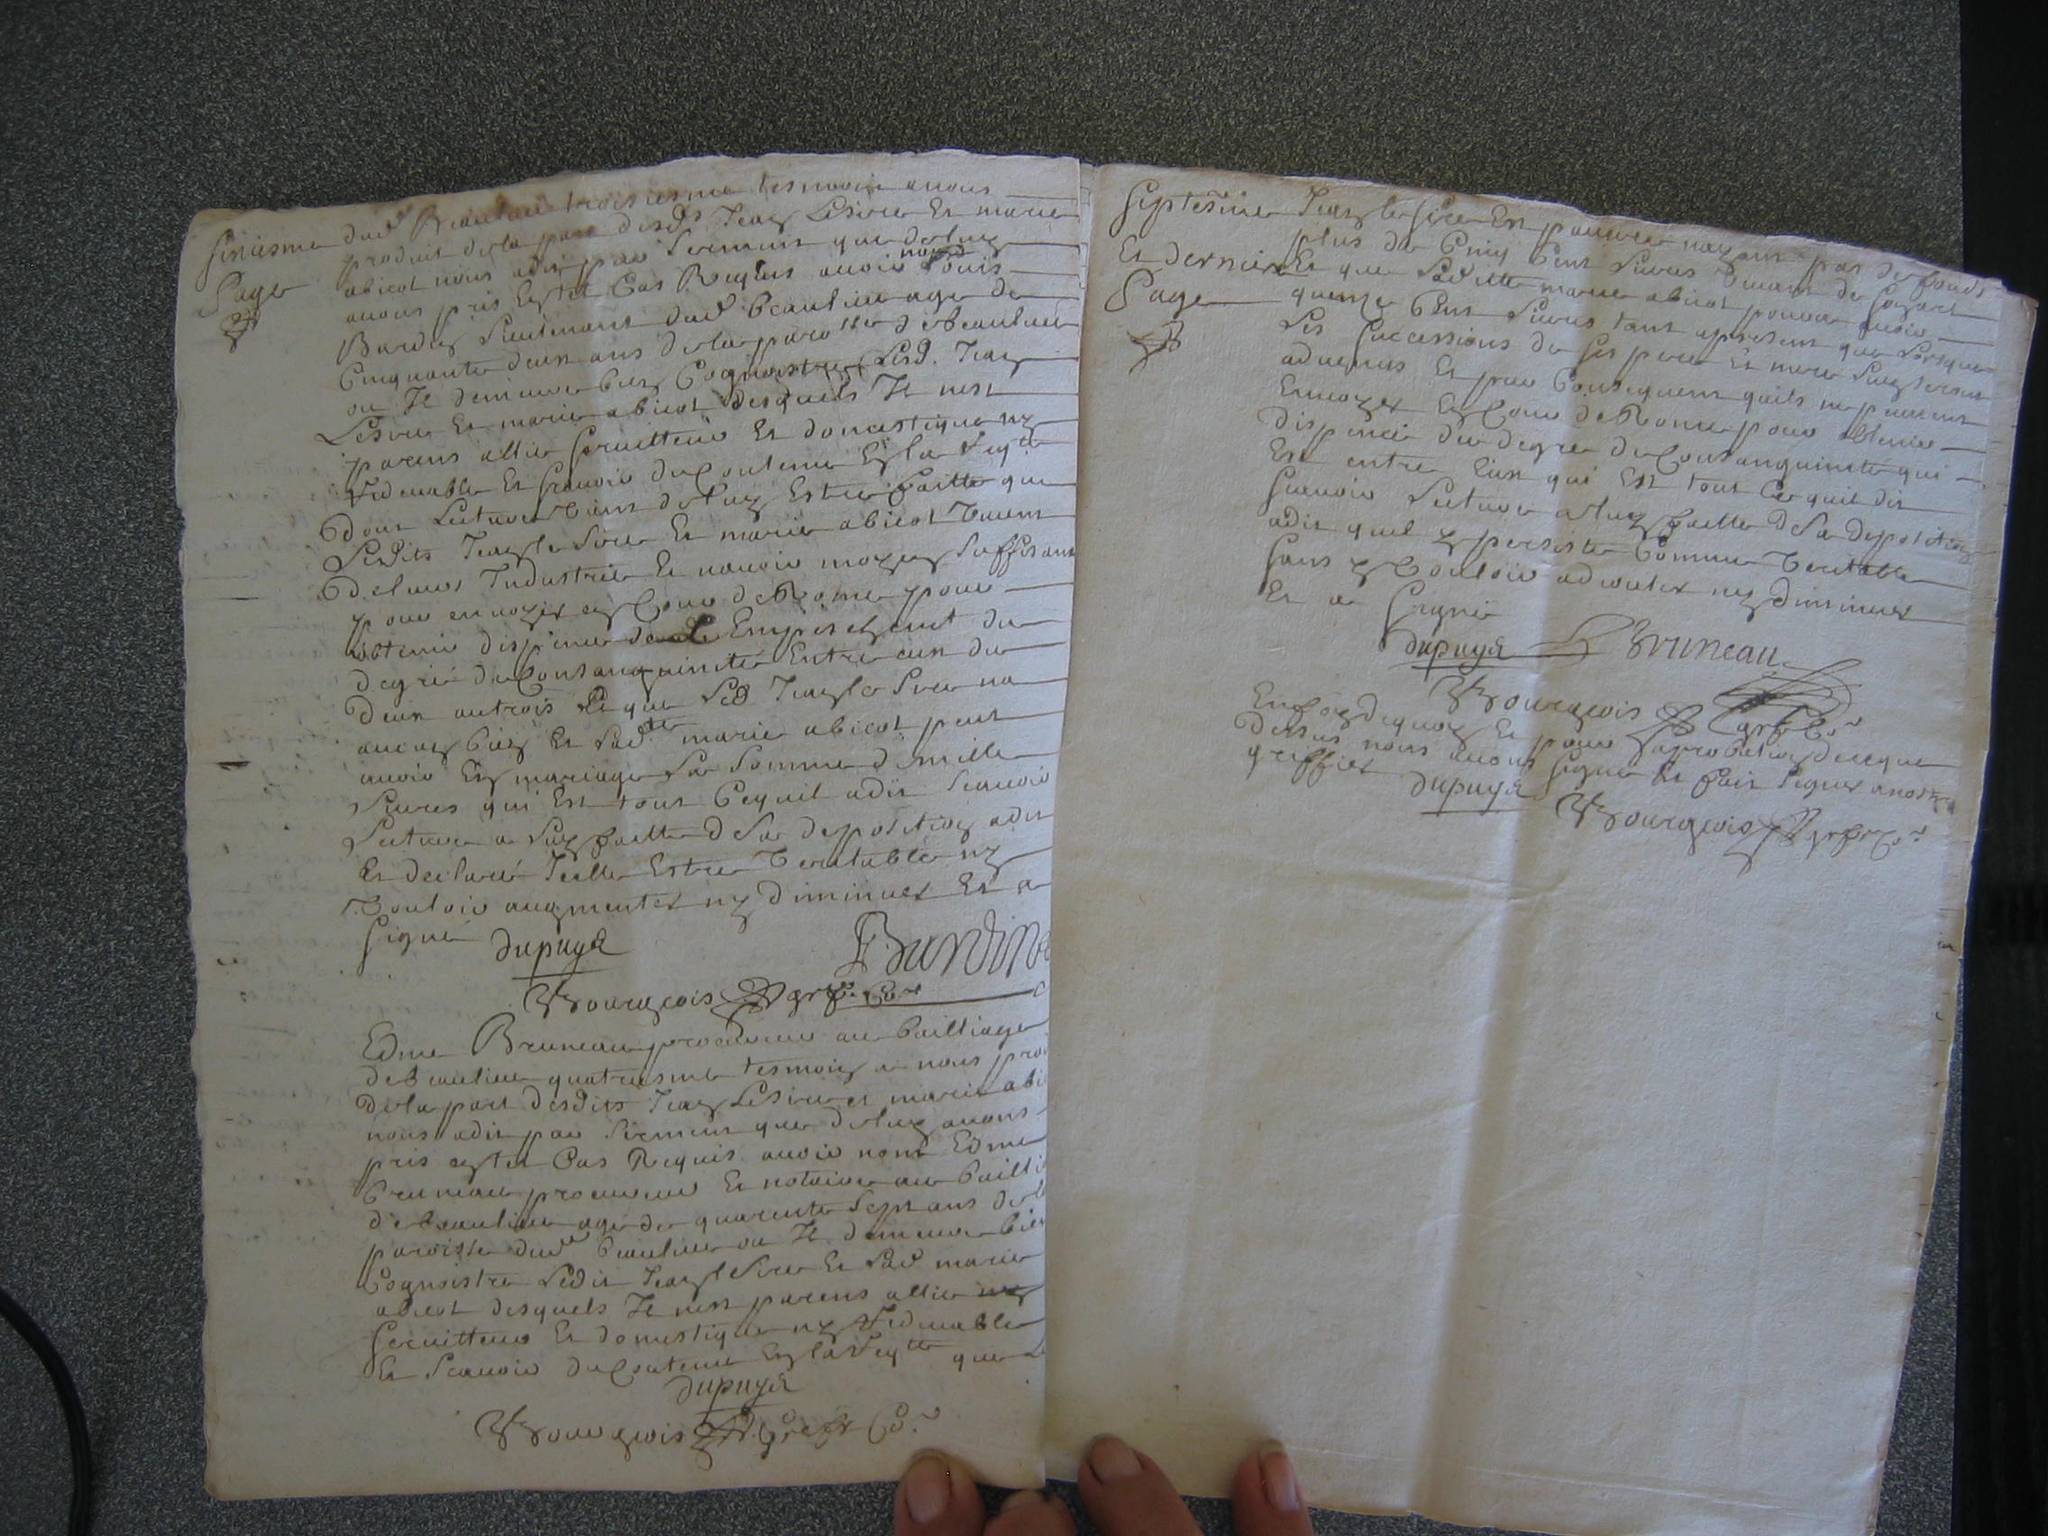 sixiesme
page
dud Beaulieu troisiesme tesmoin a nous
produit de la part desds Jean Lesire Et marie
abicot nous a dit par serment que de luy
auons pris En tel Cas Requis auoir nom Louis
Bardin Lieutenant dud beaulieu age de
Cinquante deux ans de la paroisse de beaulieu
ou Il demeure bien Cognoistre Lesd. Jean
Lesire Et marie abicot desquels Il nest
parens allie seruitteur Et domestique ny
redeuable Et scauoir du Contenu En la Reqte
dont Lecture vient de luy Estre faitte que
Lesdits Jean le Sire Et marie abicot viuent
de leur Industrie Et nauoir moyen suffisant
pour enuoyer en Cour de Rome pour
obtenir dispence de Empeschement du
degré de Consanguinité Entre eux du
deux au trois Et que Led Jean le Sire na
aucun bien Et Lad. marie abicot peut
auoir En mariage La Somme de mille
Liures qui Est tout Ce quil a dit scauoir
Lecture a Luy faitte de Sa deposition a dit
Et declaré Icelle Estre veritable ny
vouloir augmenter ny diminuer Et a
signé dupuyé Bardin
Bourgeois greff. Co.
Edme Bruneau procureur au bailliage
de beaulieu quatriesme tesmoin a nous pro
de la part desdits Jean Lesire et marie abi
nous a dit par serment que de luy auons
pris en tel Cas Requis auoir nom Edme
bruneau procureur Et notaire au bailli
de beaulieu age de quarente sept ans de l
paroisse dud beaulieu ou Il demeure bien
Cognoistre Ledit Jean le Sire Et Lad marie
abicot desquels Il nest parens allie ny
seruitteur Et domestique ny redeuable
Et scauoir du Contenu En la Reqte que L
dupuyé
Bourgeois Greff Co.
septiesme
Et dernier
page
Jean le sire Est pauure nayant pas de fonds
plus de Cinq Cent Liures
Et que Laditte marie abicot pouuoir auoir
quenze Cent Liures tant apresent que Lorsque
Les successions de ses pere Et mere Luy seront
aduenues Et par Consequent quils ne peuuent
Enuoyer En Cour de Rome pour obtenir
dispence du degré de Consanguinité qui
Est entre Eux qui Est tout Ce quil dit
scauoir Lecture a luy faitte de Sa deposition
a dit quil y persiste Comme veritable
sans y vouloir adiouter ny diminuer
Et a signé
dupuyé Bruneau
Bourgeois greff Co.
En foy dequoy Et pour aprobation de ce que
dessus nous auons signé Et fait signer a nostre
greffier dupuyé
Bourgeois greff Co.